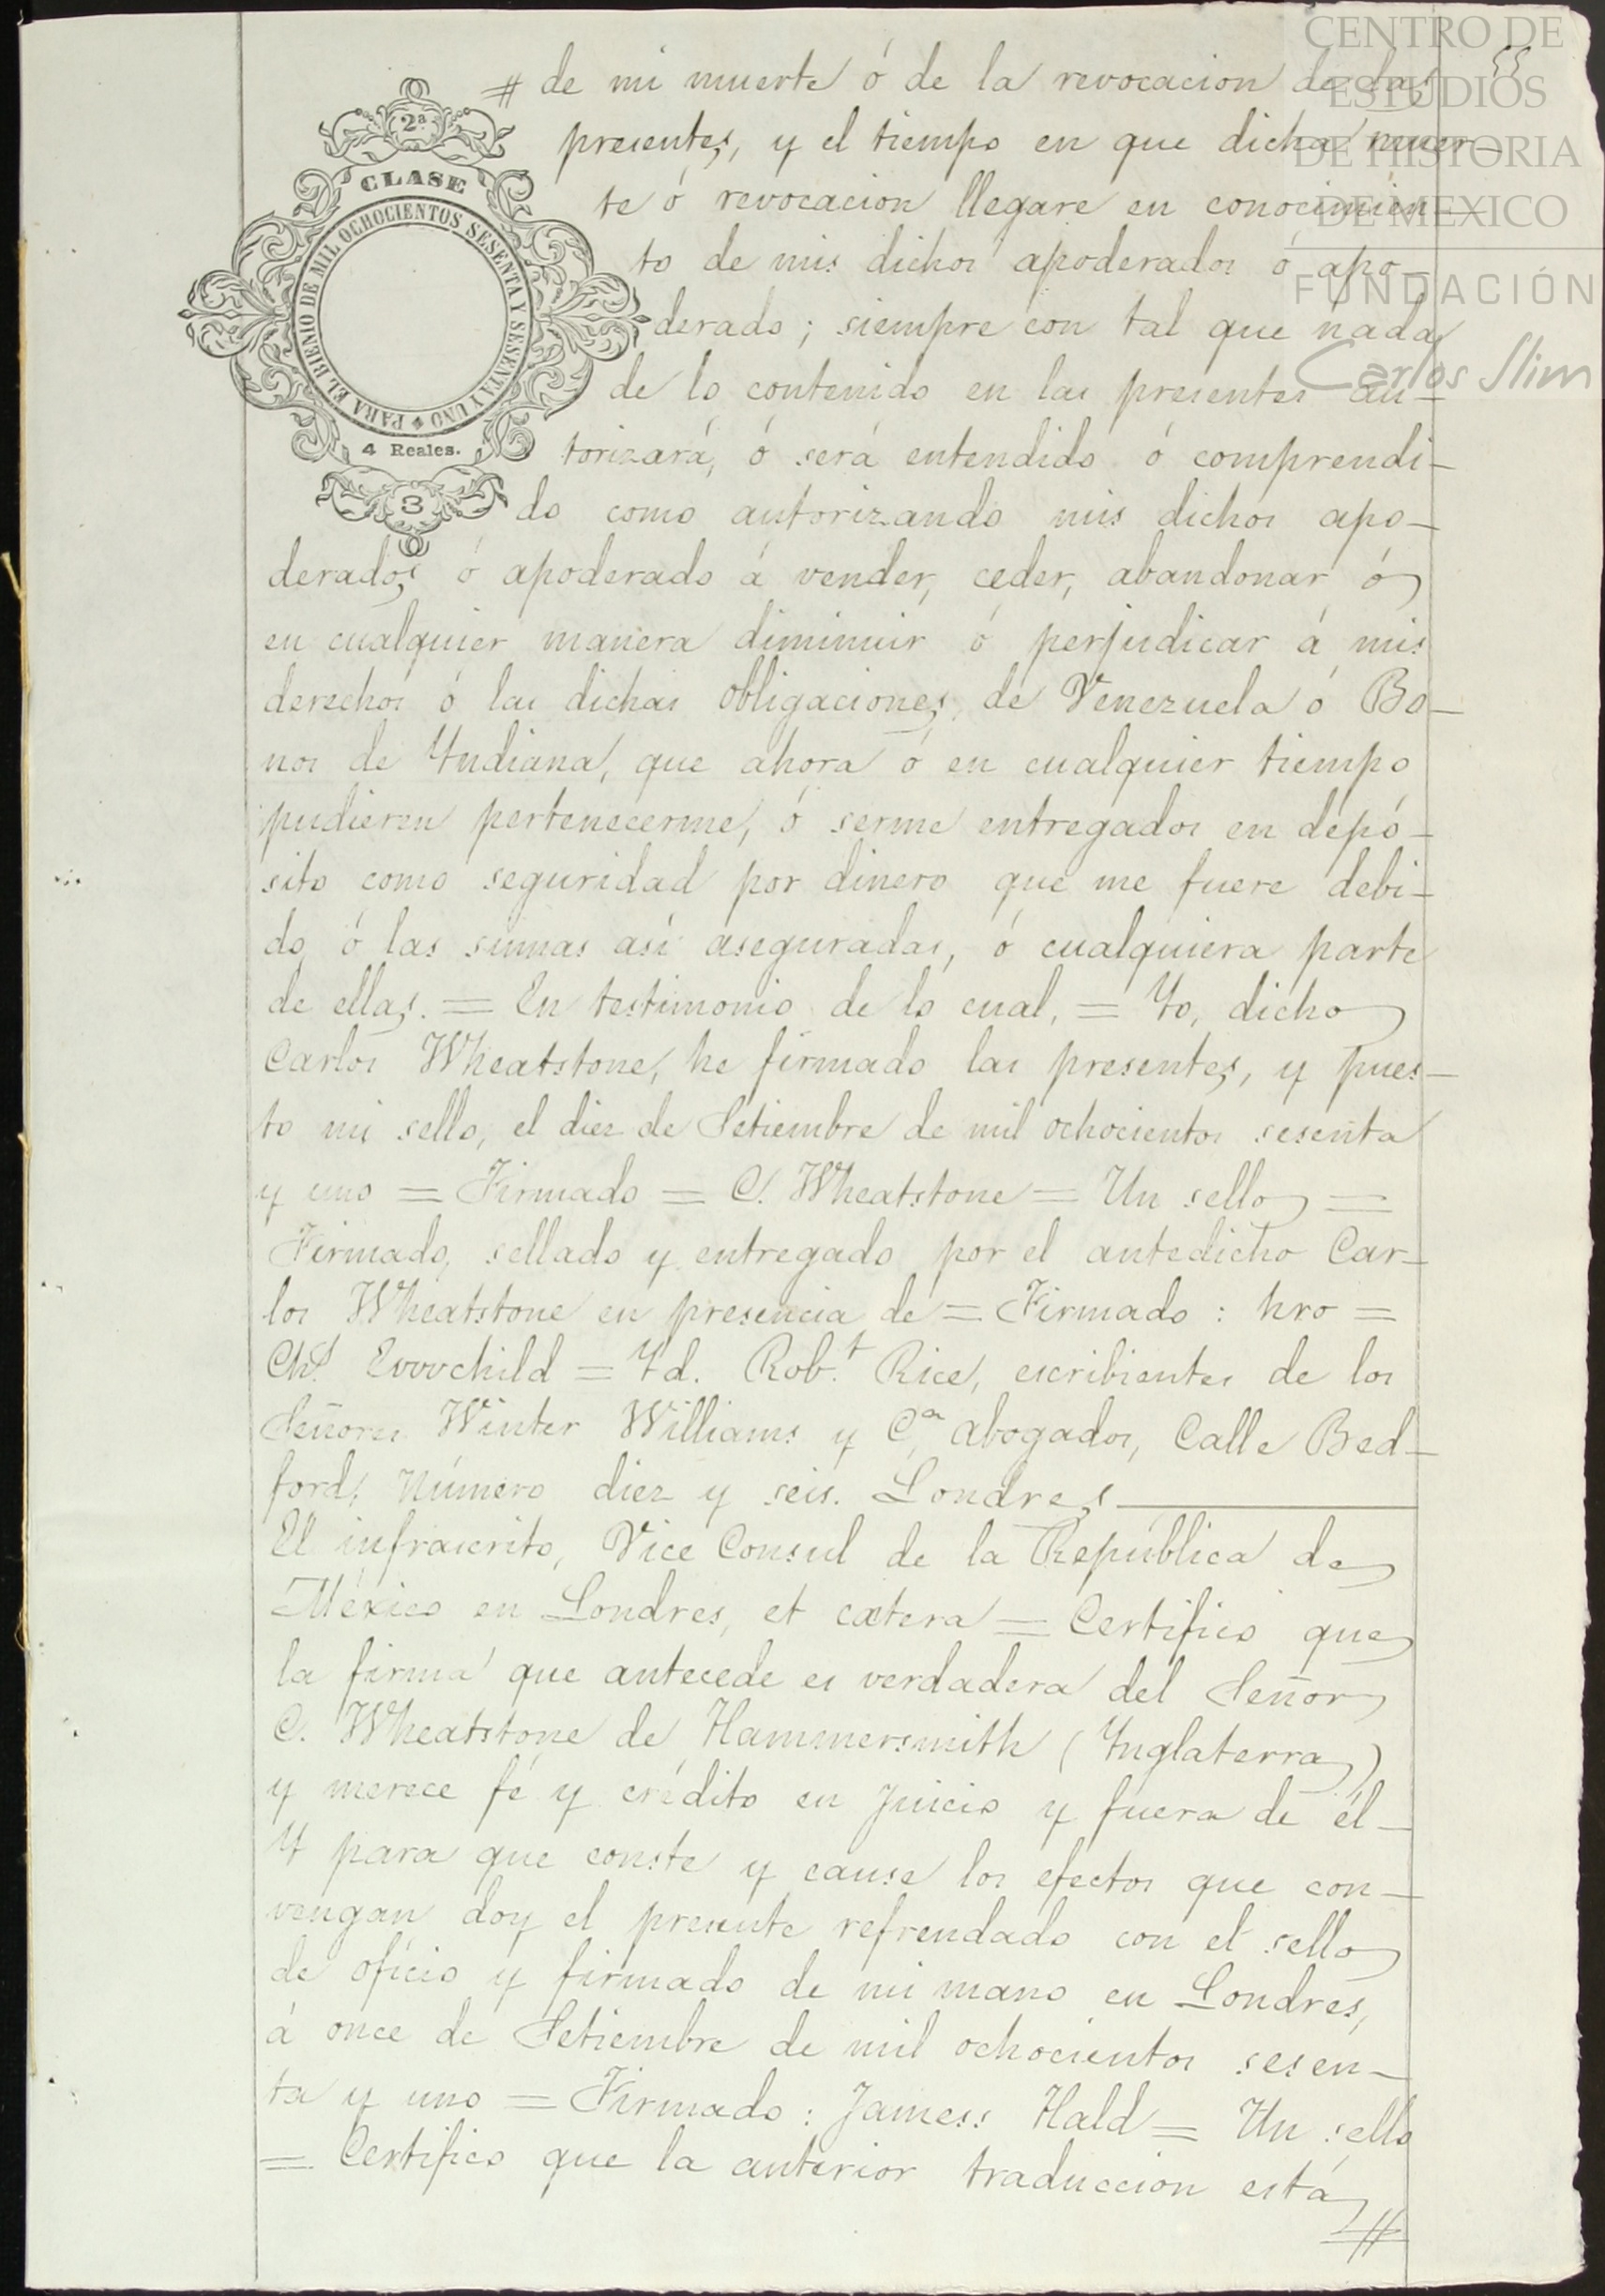 CENTRO DE
ESTUDIOS
DE HISTORIA
DE MEXICO
FUNDACIÓN
Carlos Slim
55
2ª
CLASE
PARA EL BIENIO DE MIL OCHOCIENTOS SESENTA Y SESENTA Y UNO
4 Reales.
3
# de mi muerte ó de la revocacion de las
presentes, y el tiempo en que dicha muer-
te ó revocacion llegare en conocimien-
to de mis dichos apoderados ó apo-
derado; siempre con tal que nada
de lo contenido en las presentes au-
torizará, ó será entendido ó comprendi-
do como autorizando mis dichos apo-
derados ó apoderado á vender, ceder, abandonar ó
en cualquier manera diminuir ó perjudicar á mis
derechos ó las dichas obligaciones de Venezuela ó Bo-
nos de Yndiana, que ahora ó en cualquier tiempo
pudieren pertenecerme, ó serme entregados en depó-
sito como seguridad por dinero que me fuere debi-
do ó las sumas así aseguradas, ó cualquiera parte
de ellas. = En testimonio de lo cual, = Yo, dicho
Carlos Wheatstone, he firmado las presentes, y pues-
to mi sello, el diez de Setiembre de mil ochocientos sesenta
y uno = Firmado = C. Wheatstone = Un sello =
Firmado, sellado y entregado por el antedicho Car-
los Wheatstone en presencia de = Firmado: hro =
Chs. Evovchild = Yd. Robt. Rice, escribientes de los
Señores Winter Williams y Cª, abogados, Calle Bed-
ford, Número diez y seis. Londres
El infrascrito, Vice Consul de la República de
México en Londres, et cætera = Certifico que
la firma que antecede es verdadera del Señor
C. Wheatstone de Hammersmith (Ynglaterra)
y merece fé y crédito en Juicio y fuera de él-
Y para que conste y cause los efectos que con-
vengan doy el presente refrendado con el sello
de oficio y firmado de mi mano en Londres,
á once de Setiembre de mil ochocientos sesen-
ta y uno = Firmado: Jamess Hald = Un sello
= Certifico que la anterior traduccion está
#